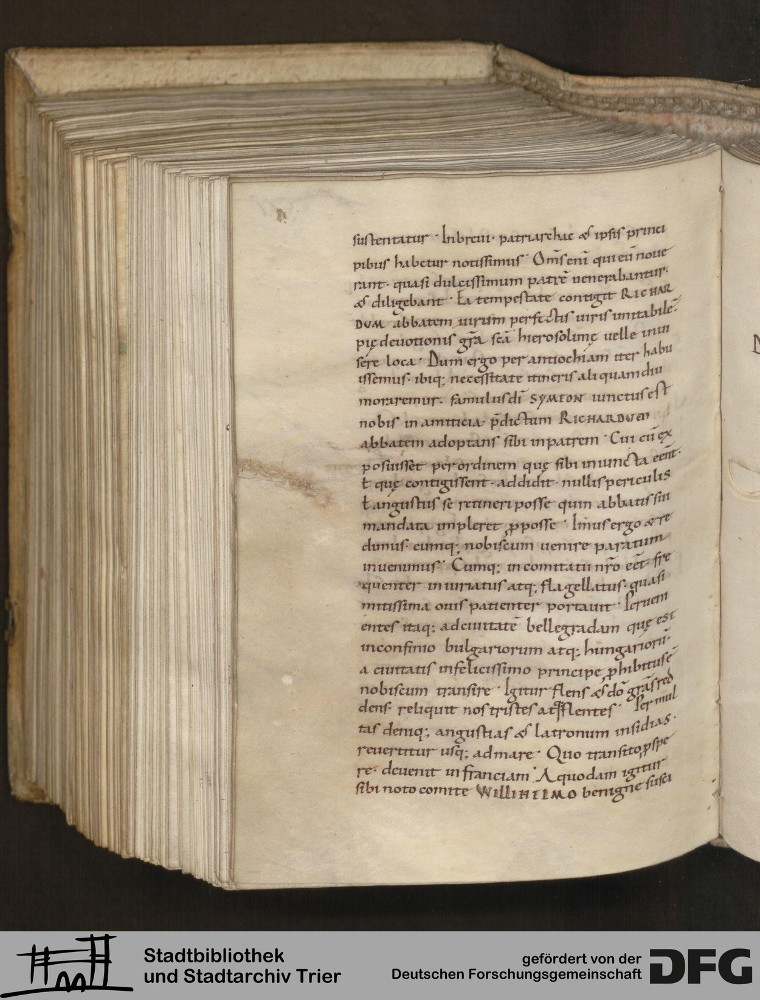 sustentatur · Inbreui · patriarchae & ipsis princi
pibus habetur notissimus · Om̄s enī qui eū noue
rant · quasi dulcissimum patrē uenerabantur ·
& diligebant · Ea tempestate contigit RICHAR
DUM abbatem uirum perfectis uiris imitabilē ·
pię deuotionis gr̄a sc̄a hierosolimę uelle inui
sere loca · Dum ergo per antiochiam iter habu
issemus · ibiq; necessitate itineris aliquamdiu
moraremur · famulus dī SYMEON iunctus est
nobis in amiticia p̄dictum RICHARDUM
abbatem adoptans sibi in patrem · Cui cū ex
posuisset per ordinem quę sibi iniuncta eēnt ·
ł quę contigissent · addidit · nullis periculis
ł angustiis se retineri posse quin abbatis sui
mandata impleret ꝓ posse · Iuimus ergo & re
diimus · eumq; nobiscum uenire paratum
inuenimus · Cumq; in comitatu nr̄o eēt · fre
quenter iniuriatus atq; flagellatus · quasi
mitissima ouis patienter portauit · Perueni
entes itaq; ad ciuitatē bellegradam quę est
in confinio bulgariorum atq; hungariorū ·
a ciuitatis infelicissimo principe ꝓhibitus ē
nobiscum transire · Igitur flens & dō grās red
dens · reliquit nos tristes atq; flentes · Per mul
tas deniq; angustias & latronum insidias ·
reuertitur usq; ad mare · Quo transito ꝓspe
re · deuenit in franciam · A quodam igitur
sibi noto comite WILLIHELMO benigne susci
Stadtbibliothek
und Stadtarchiv Trier
gefördert von der
Deutschen Forschungsgemeinschaft
DFG